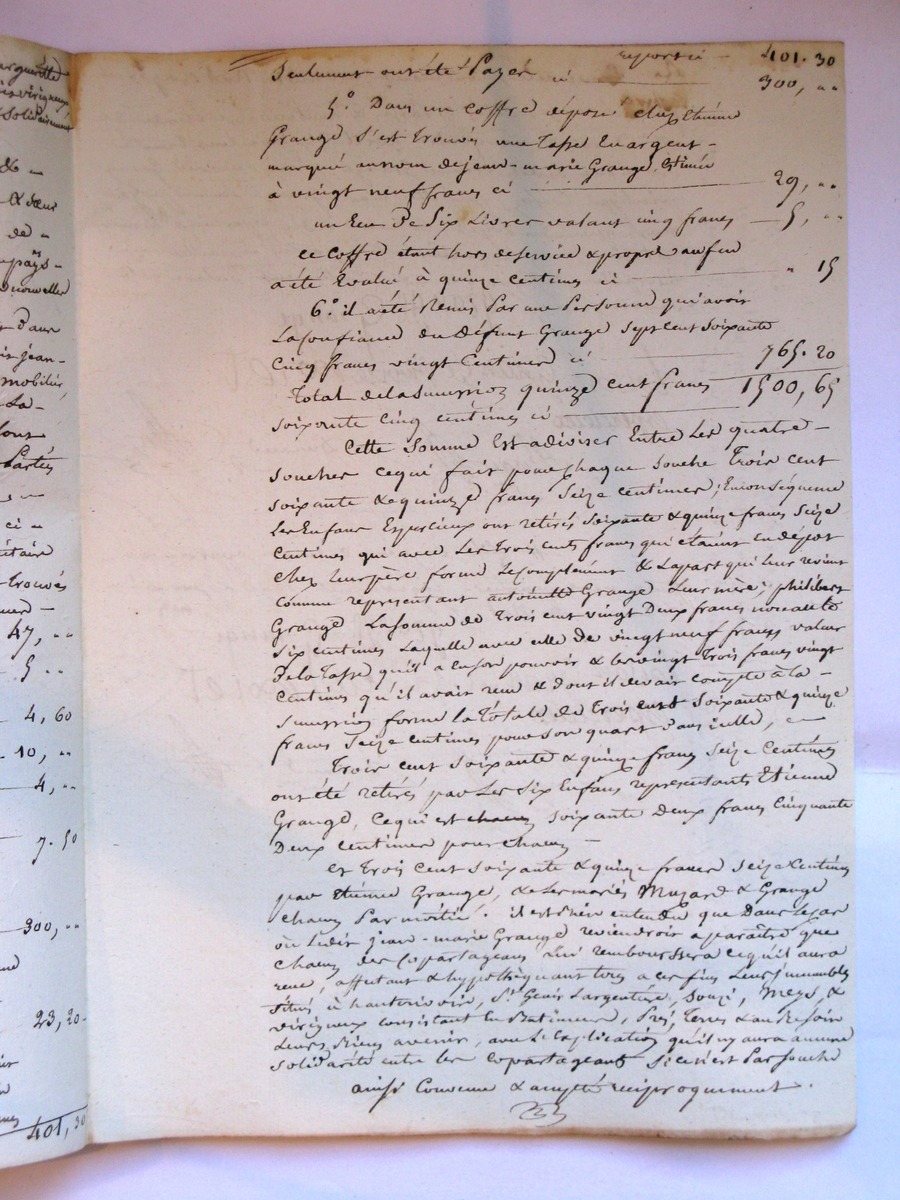 argueritte
virigneux
solidairement
& -
& sœur
de -
pays -
nouvelles
D'une
jean-
mobilier
La-
Parties
ci -
trouvés
47, "
5 "
4, 60
10, "
4, "
7. 50
300, "
23, 20
401, 30
reporté ci - 401. 30
Seulement ont été Payés ci 300, "
5°. Dans un coffre déposé chez étienne
Grange s'est trouvés une Tasse En argent-
marqué au nom de jean-marie Grange, Estimée
à vingt neuf francs ci 29, "
un Ecu De Six Livres valant cinq francs 5, "
ce Coffre étant hors de service & propre au feu
a été Evalué à quinze centimes ci " 15
6°. il a été Remis Par une Personne qui avoit
La Confiance du Défunt Grange Sept cent soixante
Cinq francs vingt Centimes ci 765. 20
Total de la Succession quinze cent francs 1500, 65
soixante cinq centimes ci
Cette Somme Est a diviser Entre Les quatre -
souches ce qui fait pour chaque souche Trois cent
soixante & quinze francs Seize centimes; En conséquence
Les Enfans Esparcieux ont retirés soixante & quinze francs seize
Centimes qui avec Les trois cents francs qui étaient en dépôt
chez Leur père forme Le complément & La part qui leur revient
comme representant antoinette Grange Leur mère; philibert
Grange La somme de Trois cent vingt Deux francs
six centimes Laquelle avec celle de vingt neuf francs valeur
De la Tasse qu'il a en son pouvoir & les vingt Trois francs vingt
Centimes qu'il avait reçu & dont il devoit compte à la -
succession forme la Totale de Trois cent Soixante & quinze
francs Seize centimes pour son quart Dans icelle,
Trois cent soixante & quinze francs Seize Centimes
ont été retirés par Les Six Enfans representants Etienne
Grange, Ce qui est chacun soixante Deux francs Cinquante
Deux centimes pour chacun -
et Trois cent soixante & quinze francs Seize Centimes
par étienne Grange, & Les mariés Muzard & Grange
chacun Par moitié. il est bien entendu que Dans le cas
où Ledit jean-marie Grange reviendroit a paraître que
Chacun des Copartageans Lui rembourssera ce qu'il aura
reçu, affectant & hypothéquant tous a ces fins Leurs immeubles
situés à hauterivoire, St. Genis Largentière, Souzi, Meys, &
virigneux consistant En Batiments, Prés, Terres & au Besoin
Leurs Biens avenir, avec L'explication qu'il n'y aura aucune
solidarité entre les Copartageants Si ce n'est Par souche
ainsi Convenu & accepté réciproquement.